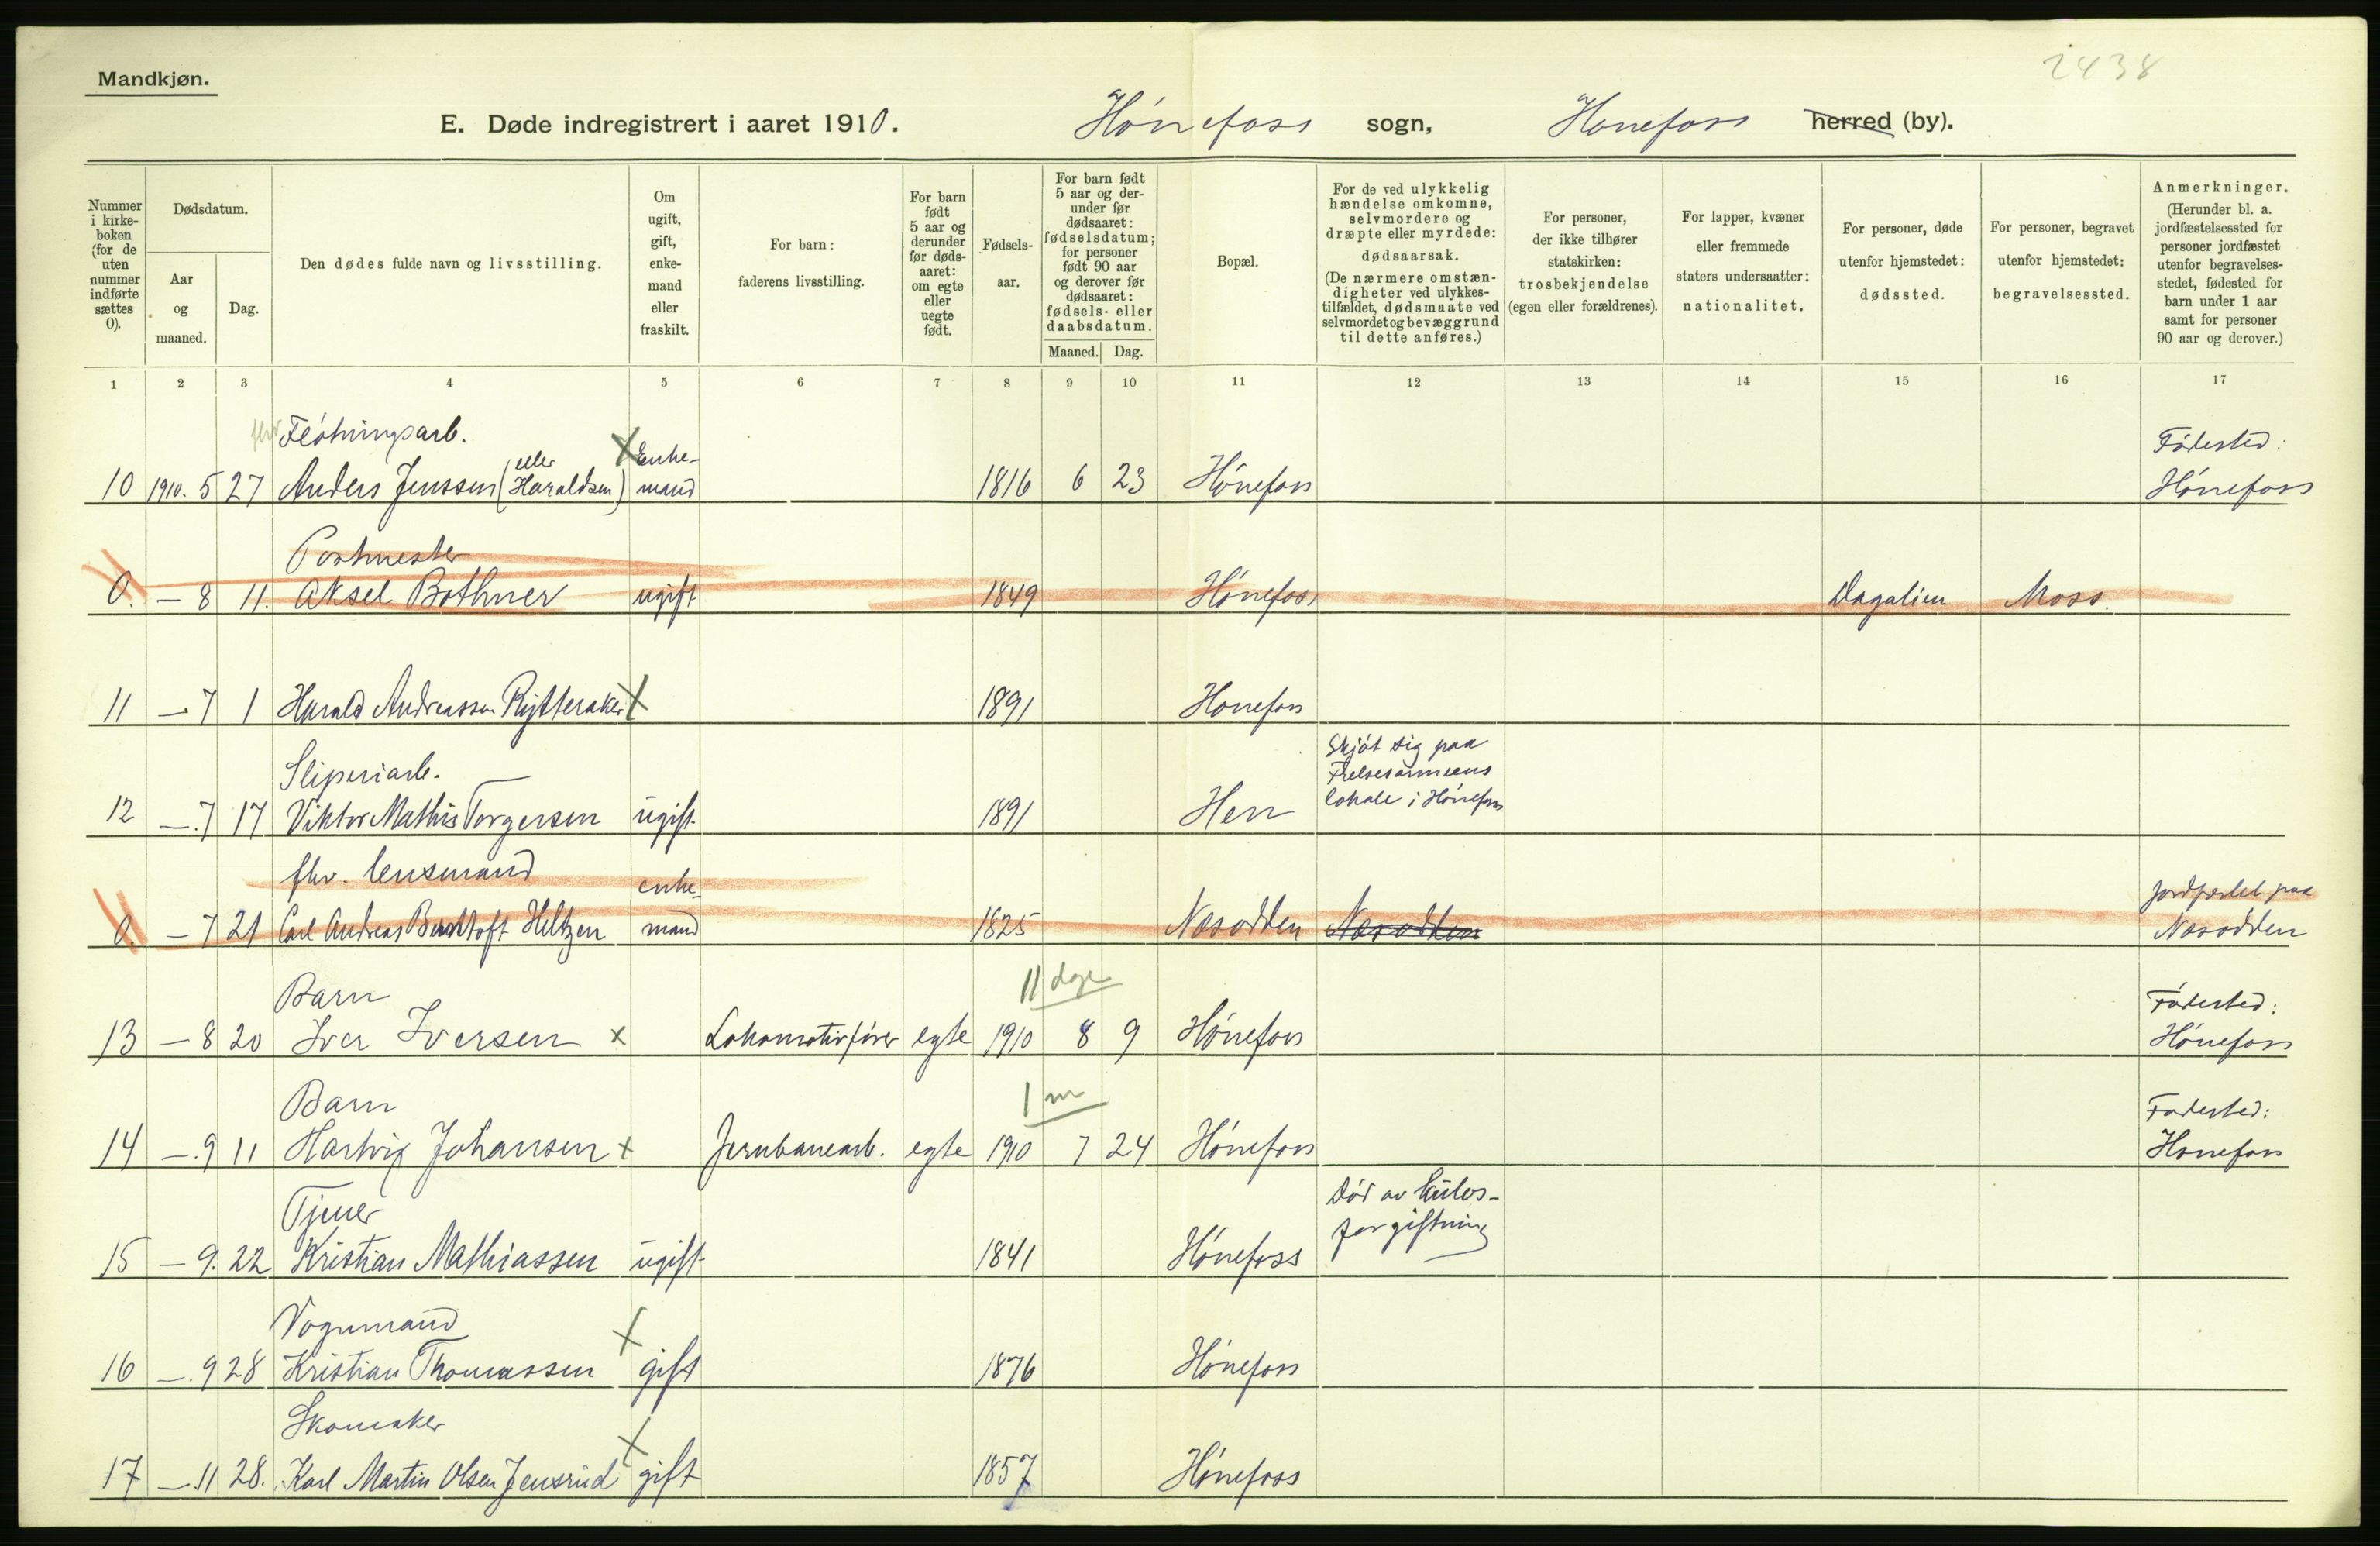 2438
Mandkjøn.
E. Døde indregistrert i aaret 1910. Hønefoss sogn, Hønefoss herred (by).
Nummer i kirkeboken (for de uten nummer indførte sættes 0).
Dødsdatum.
Aar og maaned.
Dag.
Den dødes fulde navn og livsstilling.
Om ugift, gift, enkemand eller fraskilt.
For barn: faderens livsstilling.
For barn født 5 aar og derunder før dødsaaret: om egte eller uegte født.
Fødselsaar.
For barn født 5 aar og derunder før dødsaaret: fødselsdatum; for personer født 90 aar og derover før dødsaaret: fødsels- eller daabsdatum.
Maaned. Dag.
Bopæl.
For de ved ulykkelig hændelse omkomne, selvmordere og dræpte eller myrdede: dødsaarsak. (De nærmere omstændigheter ved ulykkestilfældet, dødsmaate ved selvmordet og bevæggrund til dette anføres.)
For personer, der ikke tilhører statskirken: trosbekjendelse (egen eller forældrenes).
For lapper, kvæner eller fremmede staters undersaatter: nationalitet.
For personer, døde utenfor hjemstedet: dødssted.
For personer, begravet utenfor hjemstedet: begravelsessted.
Anmerkninger. (Herunder bl. a. jordfæstelsessted for personer jordfæstet utenfor begravelsesstedet, fødested for barn under 1 aar samt for personer 90 aar og derover.)
1 2 3 4 5 6 7 8 9 10 11 12 13 14 15 16 17
fhv Fløtningsarb.
10 1910. 5 27 Anders Jenssen (eller Haraldsen) X Enkemand 1816 6 23 Hønefoss Fødested: Hønefoss
Postmester
0. — 8 11. Aksel Bothner ugift 1849 Hønefoss Dagalien Moss.
11 — 7 1 Harald Andreassen Rytteraker X 1891 Hønefoss
Sliperiarb.
12 — 7 17 Viktor Mathis Torgersen ugift 1891 Hen Skjøt sig paa Frelsesarmeens lokale i Hønefoss
fhv. lensmand
0. — 7 21 Carl Andreas Hiltzen enkemand 1825 Næsodden Næsodden jordfæstet paa Næsodden
Barn 11 dage
13 — 8 20 Iver Iversen x Lokomotivfører egte 1910 8 9 Hønefoss Fødested: Hønefoss
Barn 1 m
14 — 9 11 Hartvig Johansen x Jernbanearb. egte 1910 7 24 Hønefoss Fødested: Hønefoss
Tjener
15 — 9. 22 Kristian Mathiassen ugift 1841 Hønefoss Død av kulosforgiftning
Vognmand
16 — 9 28 Kristian Thomassen X gift 1876 Hønefoss
Skomaker
17 — 11 28. Karl Martin Olsen Jensrud X gift 1857 Hønefoss